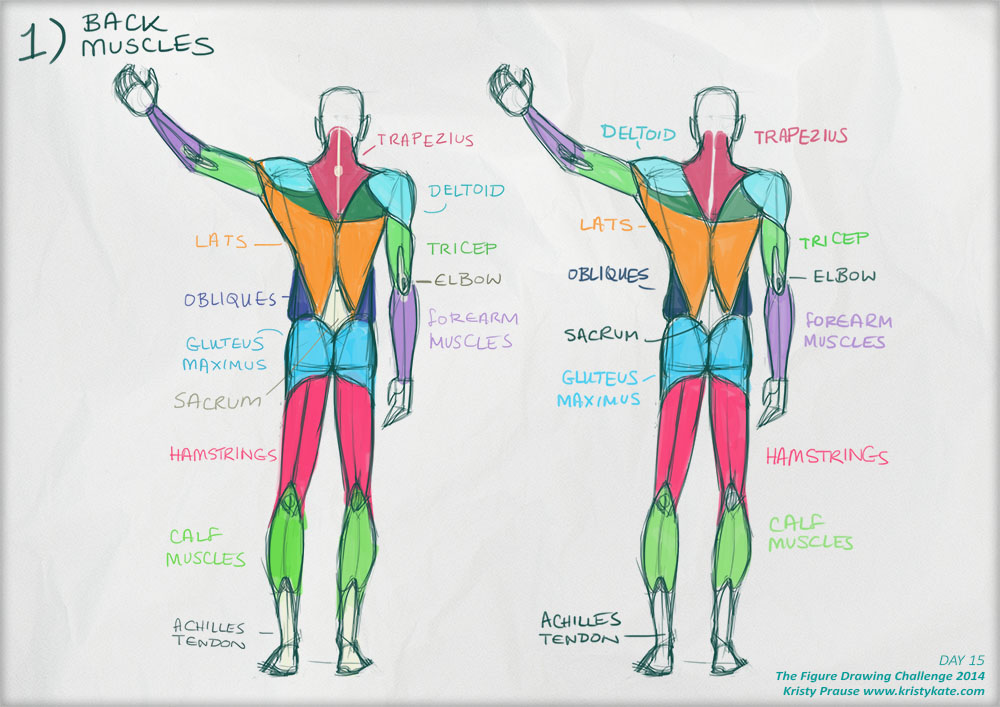 1) BACK
MUSCLES
TRAPEZIUS
DELTOID
LATS
TRICEP
ELBOW
OBLIQUES
FOREARM
MUSCLES
GLUTEUS
MAXIMUS
SACRUM
HAMSTRINGS
CALF
MUSCLES
ACHILLES
TENDON
DELTOID
TRAPEZIUS
LATS
TRICEP
OBLIQUES
ELBOW
SACRUM
FOREARM
MUSCLES
GLUTEUS
MAXIMUS
HAMSTRINGS
CALF
MUSCLES
ACHILLES
TENDON
DAY 15
The Figure Drawing Challenge 2014
Kristy Prause www.kristykate.com